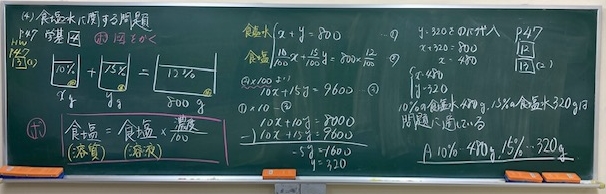 (4) 食塩水に関する問題
P47 学基 4 ポ 図をかく
HW
P47
13 (2)
10% + 15% = 12%
xg yg 800g
ポ 食塩 = 食塩水 × 濃度/100
(溶質) (溶液)
食塩水 { x + y = 800 …①
食塩 10/100 x + 15/100 y = 800 × 12/100 …②
②×100より
10x + 15y = 9600 …②'
①×10 - ②'
10x + 10y = 8000
-) 10x + 15y = 9600
-5y = -1600
y = 320
y = 320を①に代入
x + 320 = 800
x = 480
{ x = 480
y = 320
10%の食塩水480g, 15%の食塩水320gは
問題に適している
A 10%…480g, 15%…320g
P47
12
13 (2)